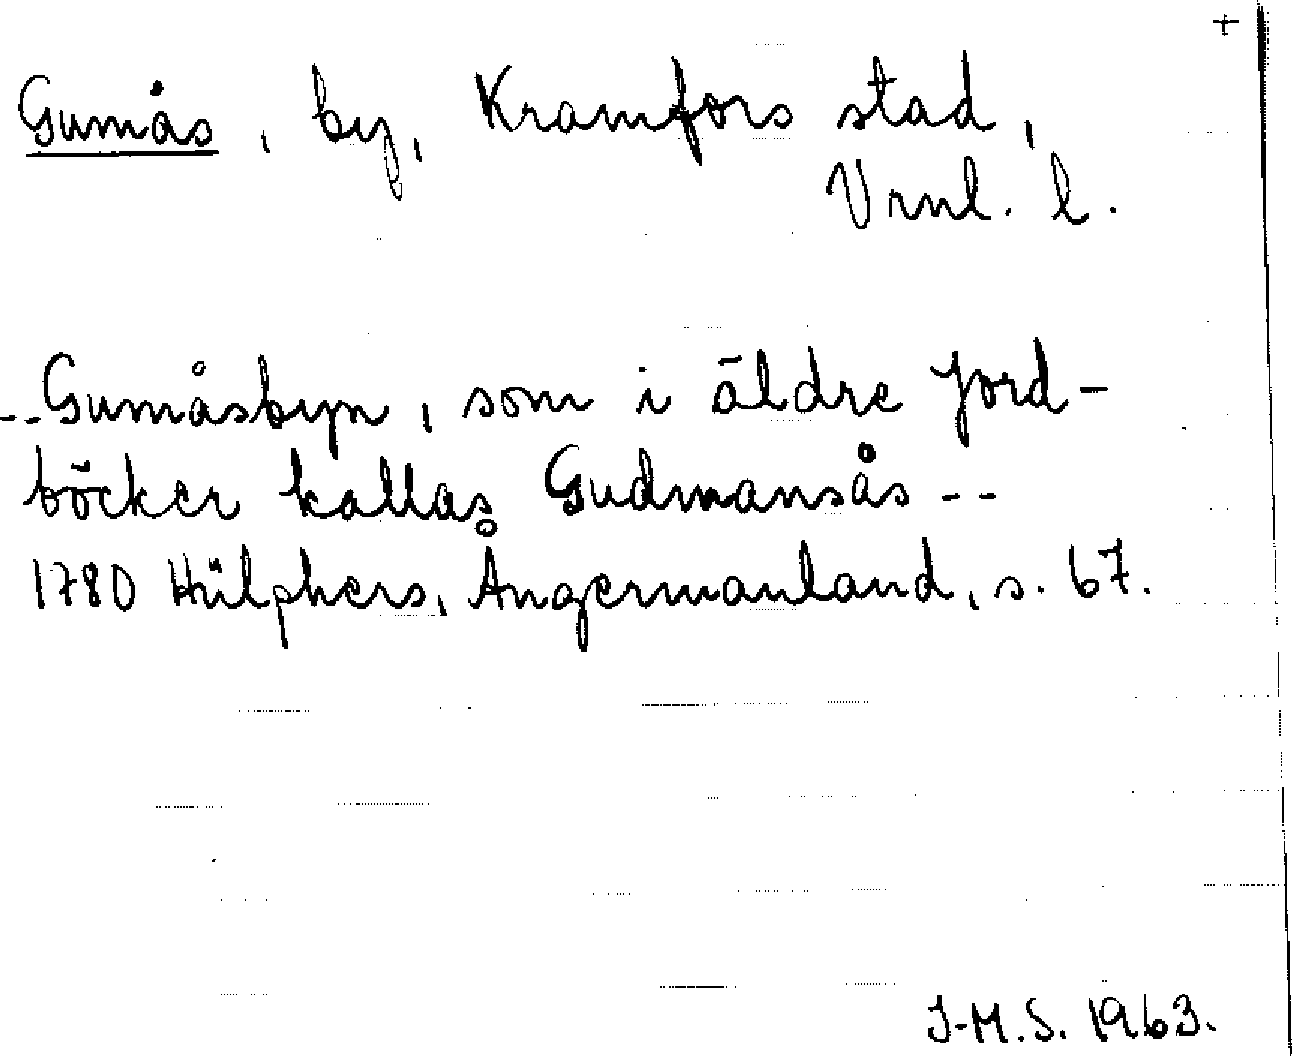 +
Gumås, by, Kramfors stad,
Vrnl. l.
--Gumåsbyn, som i äldre Jord-
böcker kallas Gudmansås --
1780 Hülphers, Ångermanland, s. 67.
J-M.S. 1963.